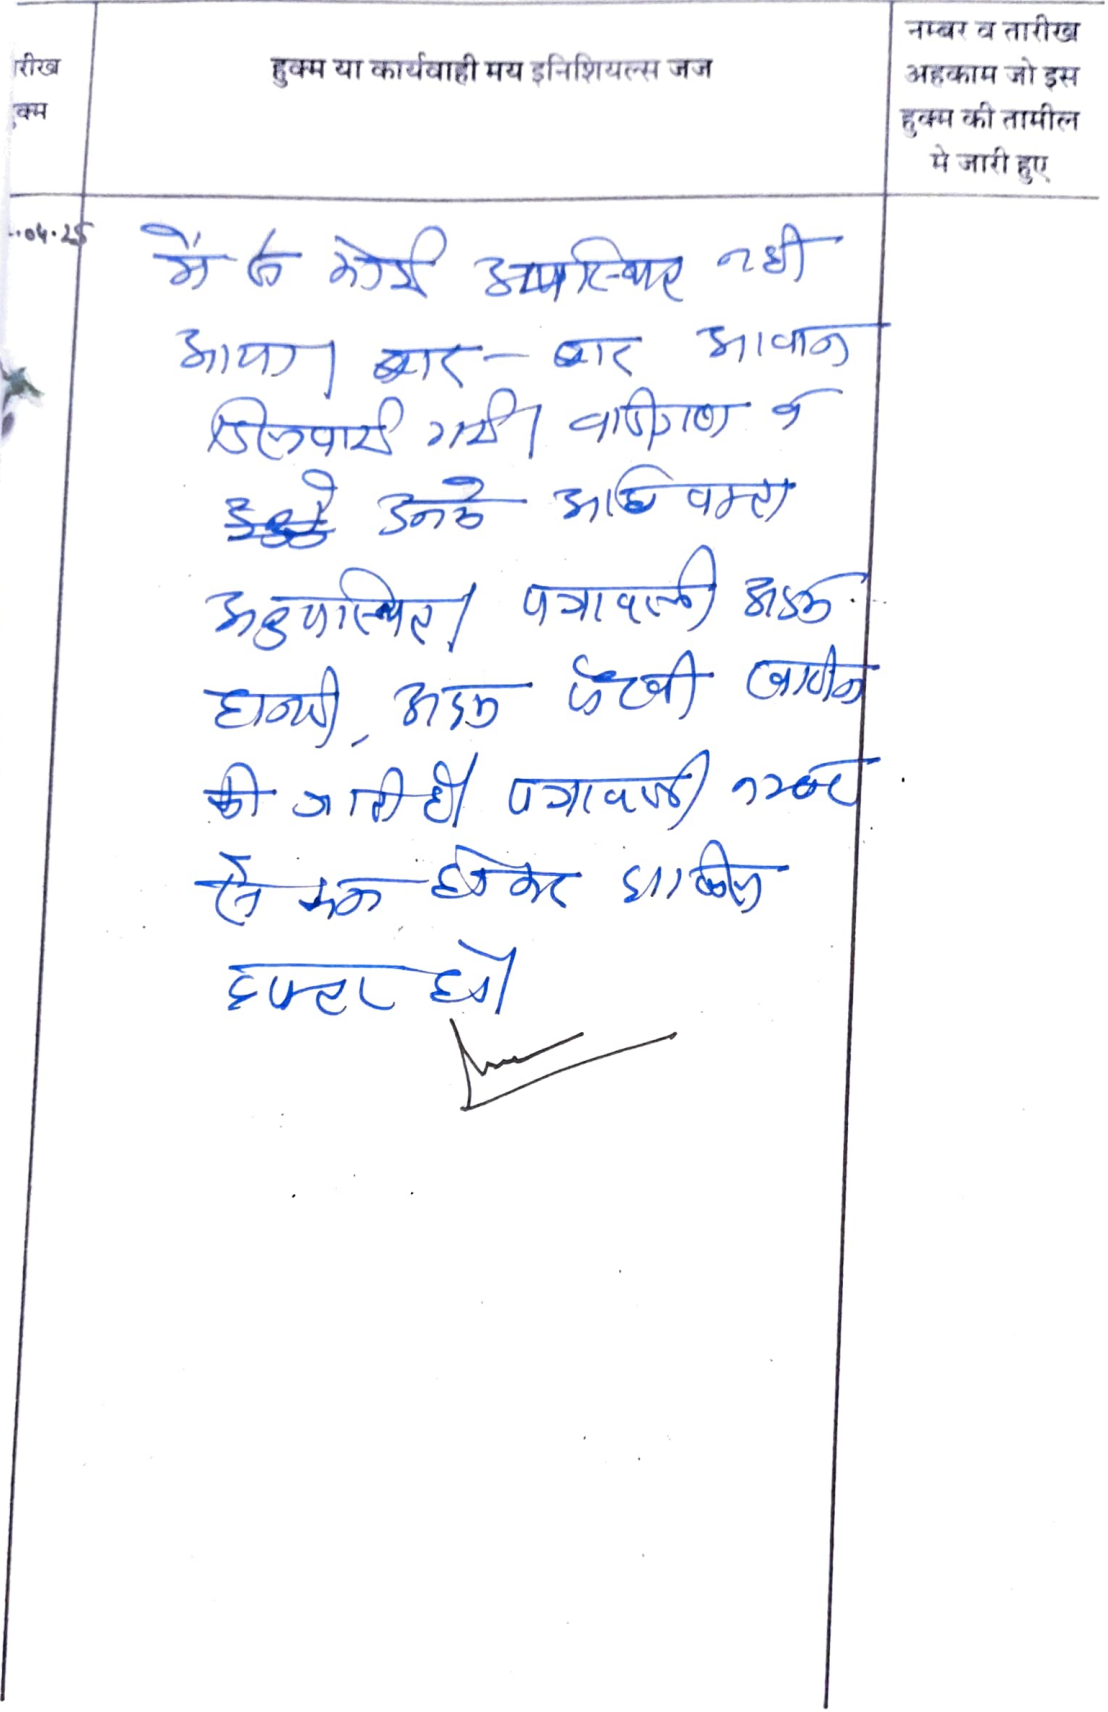 नम्बर व तारीख
रीख हुक्म या कार्यवाही मय इनिशियल्स जज अहकाम जो इस
क्म हुक्म की तामील
मे जारी हुए
.04.25 में से कोई उपस्थित नही
आया। बार-बार आवाज
दिलवायी गयी। वादीगण व
उनके अधिवक्ता
अनुपस्थित। पत्रावली अदम
हाजरी, अदम पैरवी खारीज
की जाती है। पत्रावली नम्बर
से कम होकर दाखिल
दफ्तर हो।